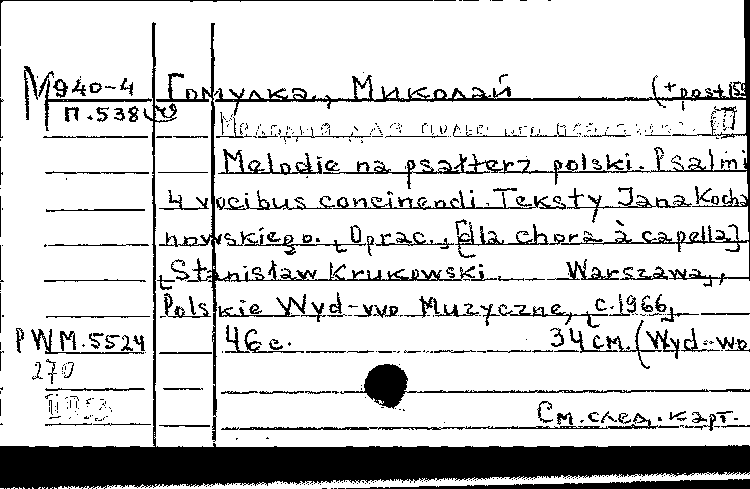 М 940-4 Гомулка, Миколай (+post 159
П.538
Melodie na psałterz polski. Psalmi
4 vocibus concinendi. Teksty Jana Kocha
nowskiego. Oprac., [dla chora à capella]
Stanisław Krukowski. Warszawa,
Polskie Wyd-wo Muzyczne, c.1966.
PWM.5524 46 с. 34 см. (Wyd-wo
270
См. след. карт.